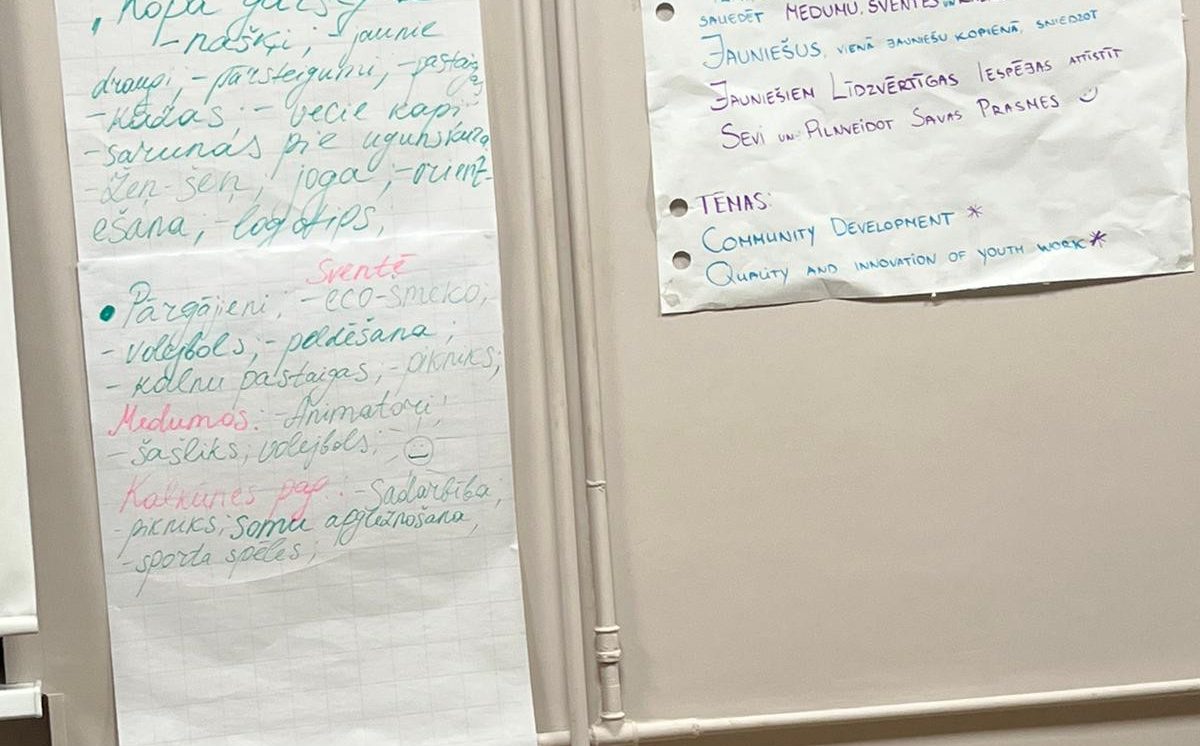 "Kopā
-našķi; -jaunie
draugi, -pārsteigumi, -pastaig
as
-kāzas - vecie kapi
-sarunas pie ugunskura
-Žeņ-šeņ, joga, -orient-
ēšana, -logotips,
Sventē
• Pārgājieni, -eco-smeko,
-volejbols, -peldēšana,
-kalnu pastaigas, -pikniks,
Medumos: -Animatori,
-šašliks, volejbols,
Kalkūnes pag.: -Sadarbība,
-pikniks, somu apgleznošana,
-sporta spēles,
SALIEDĒT MEDUMU, SVENTES UN
JAUNIEŠUS, VIENĀ JAUNIEŠU KOPIENĀ, SNIEDZOT
JAUNIEŠIEM LĪDZVĒRTĪGAS IESPĒJAS ATTĪSTĪT
SEVI UN PILNVEIDOT SAVAS PRASMES
TĒMAS:
COMMUNITY DEVELOPMENT *
QUALITY AND INNOVATION OF YOUTH WORK *